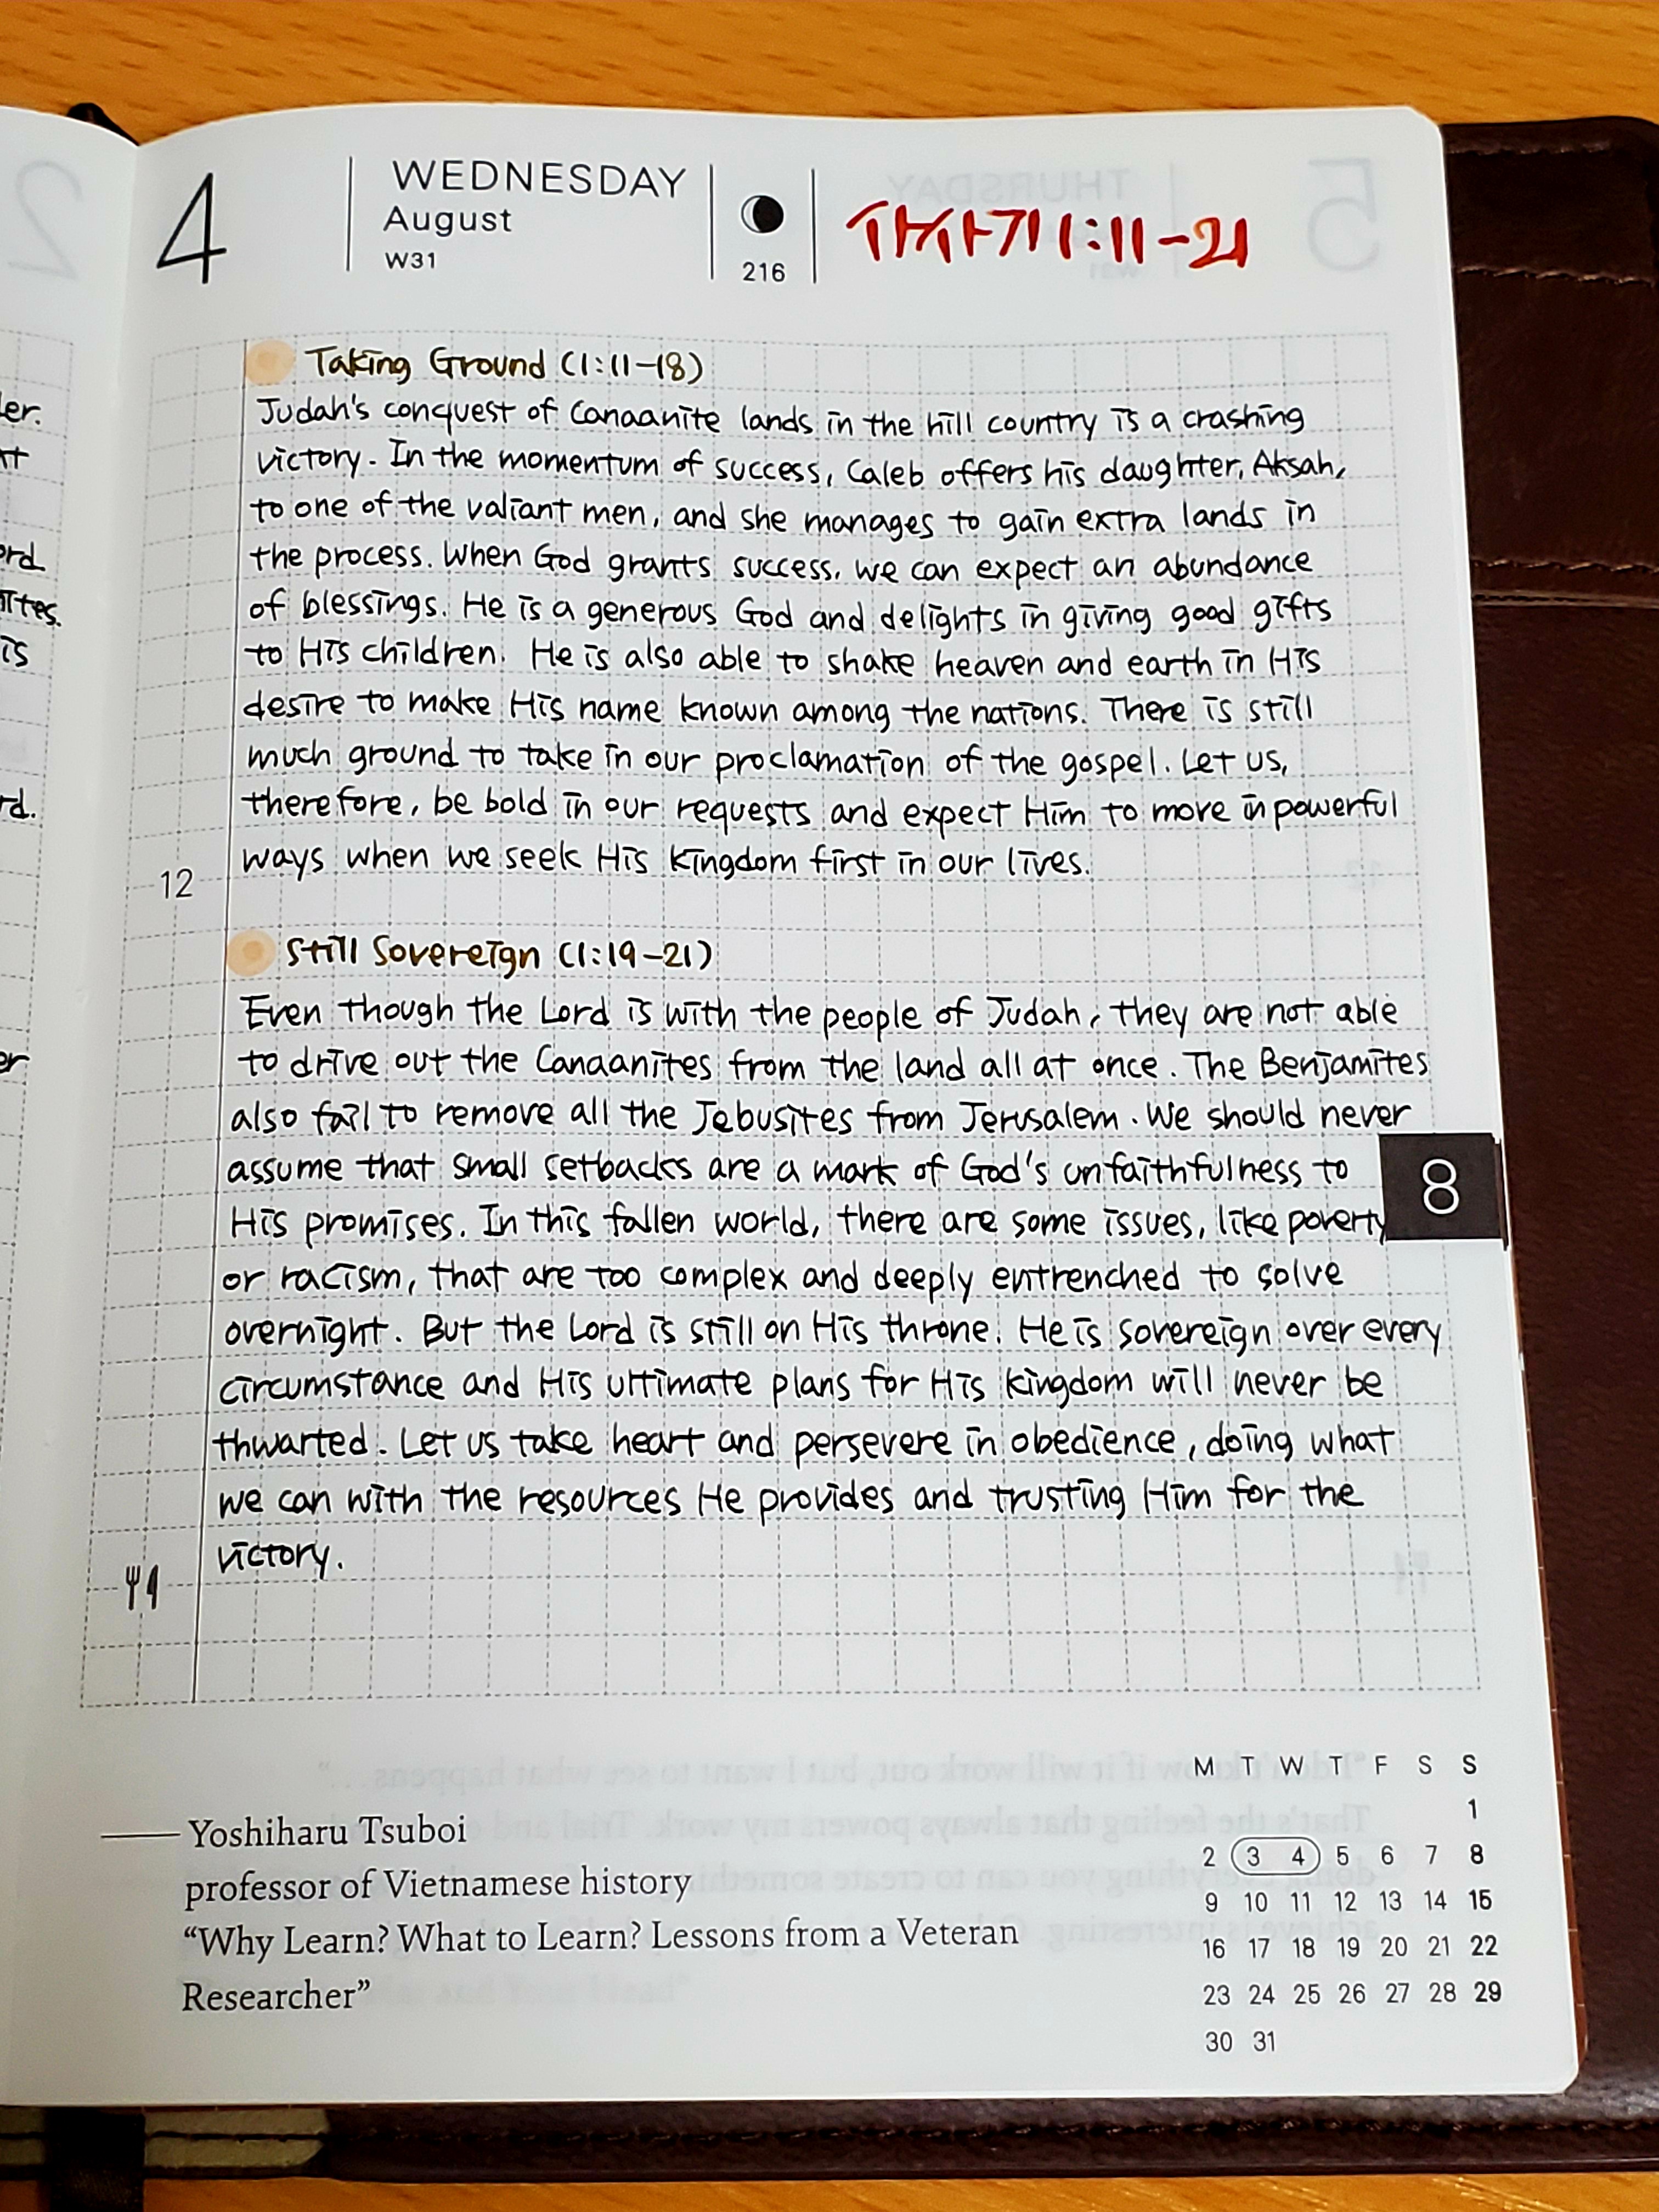 4
WEDNESDAY
August
W31
216
사사기 1:11-21
Taking Ground (1:11-18)
Judah's conquest of Canaanite lands in the hill country is a crashing
victory. In the momentum of success, Caleb offers his daughter, Aksah,
to one of the valiant men, and she manages to gain extra lands in
the process. When God grants success, we can expect an abundance
of blessings. He is a generous God and delights in giving good gifts
to His children. He is also able to shake heaven and earth in His
desire to make His name known among the nations. There is still
much ground to take in our proclamation of the gospel. Let us,
therefore, be bold in our requests and expect Him to move in powerful
ways when we seek His Kingdom first in our lives.
12
Still Sovereign (1:19-21)
Even though the Lord is with the people of Judah, they are not able
to drive out the Canaanites from the land all at once. The Benjamites
also fail to remove all the Jebusites from Jerusalem. We should never
assume that small setbacks are a mark of God's unfaithfulness to
His promises. In this fallen world, there are some issues, like poverty
8
or racism, that are too complex and deeply entrenched to solve
overnight. But the Lord is still on His throne. He is sovereign over every
circumstance and His ultimate plans for His Kingdom will never be
thwarted. Let us take heart and persevere in obedience, doing what
we can with the resources He provides and trusting Him for the
victory.
—— Yoshiharu Tsuboi
professor of Vietnamese history
“Why Learn? What to Learn? Lessons from a Veteran
Researcher”
M T W T F S S
1
2 3 4 5 6 7 8
9 10 11 12 13 14 15
16 17 18 19 20 21 22
23 24 25 26 27 28 29
30 31